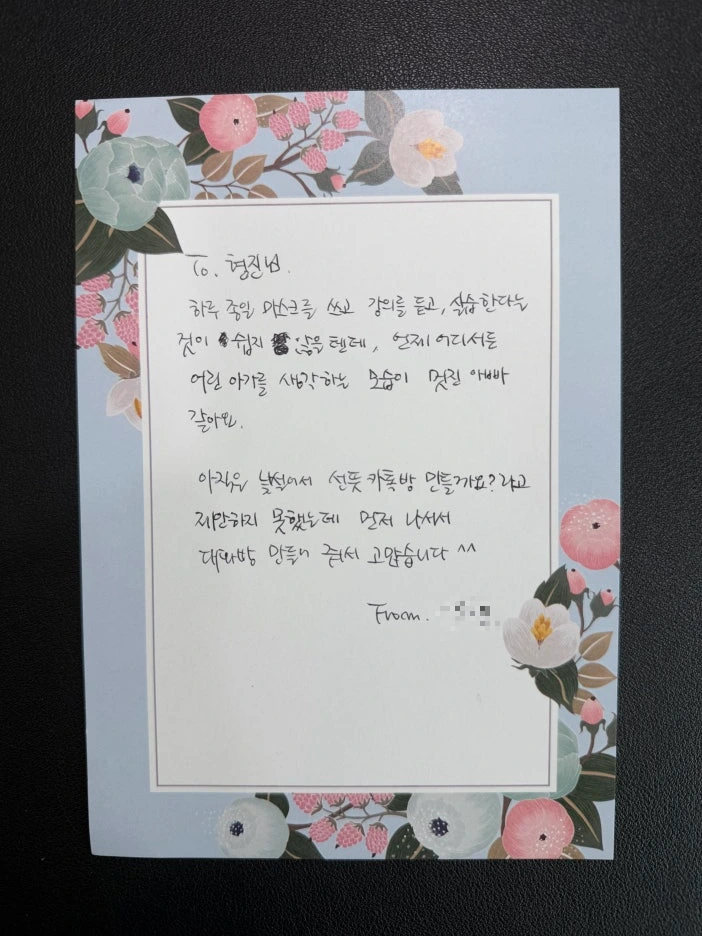 To. 형진님.
하루 종일 마스크를 쓰고 강의를 듣고, 실습한다는
것이 쉽지 않을텐데, 언제 어디서든
어린 아가를 생각하는 모습이 멋진 아빠
같아요.
아직은 낯설어서 선뜻 카톡방 만들까요? 라고
제안하지 못했는데 먼저 나서서
대화방 만들어 줘서 고맙습니다 ^^
From.